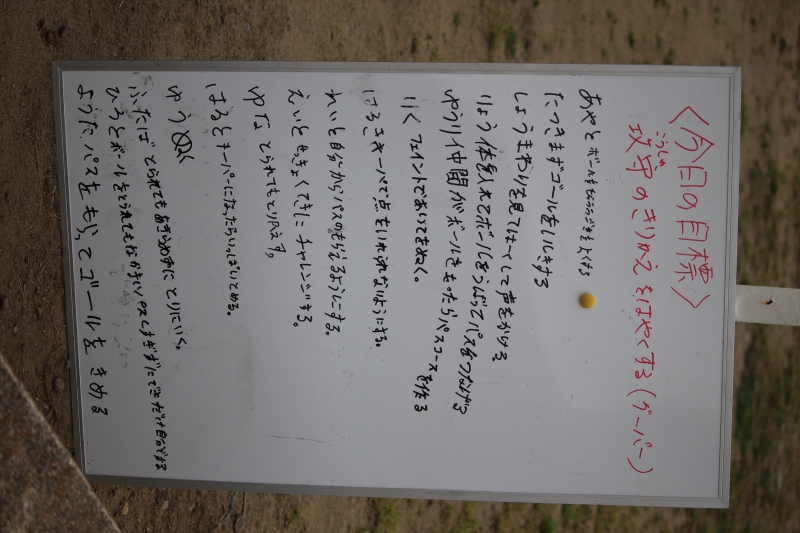 〈今日の目標〉
こうしゅ
攻守のきりかえをはやくする(グーパー)
あやと ボールを
たつき まずゴールをいしきする
しょう まわりを見て して声をかける
りょう 体を入れてボールをうばってパスをつなげる
ゆうり 仲間がボールをもったらパスコースを作る
りく フェイントであいてをぬく。
はるき キーパーで点をいれられないようにする。
れいと 自分からパスのもらえるようにする。
えいと せっきょくてきにチャレンジする。
ゆな とられてもとりかえす。
はると キーパーになったらいっぱいとめる。
ゆう
ふたば とられてもあきらめずにとりにいく。
ひろと ボールをとられてもなかずにパスしすぎずにできだけ自分でする
ようた パスをもらってゴールをきめる